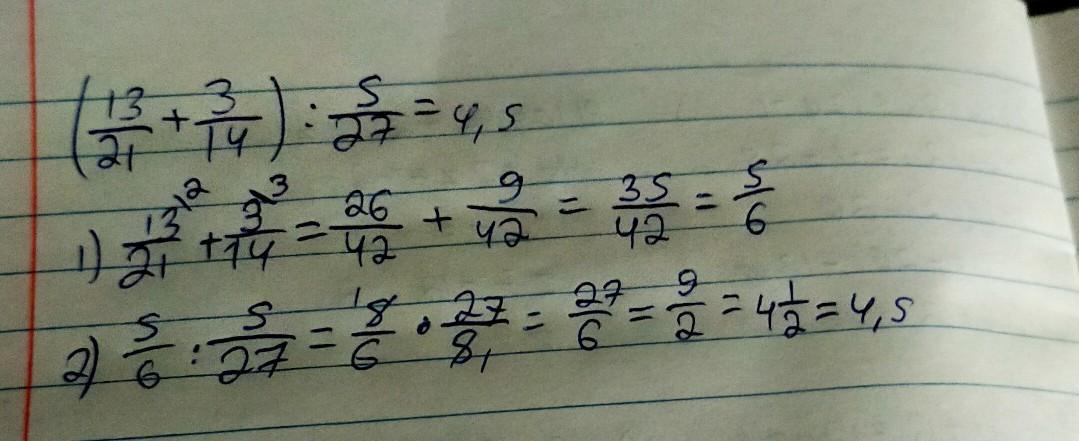 (13/21 + 3/14) : 5/27 = 4,5
1) 13\2/21 + 3\3/14 = 26/42 + 9/42 = 35/42 = 5/6
2) 5/6 : 5/27 = 5 1/6 • 27/5 1 = 27/6 = 9/2 = 4 1/2 = 4,5